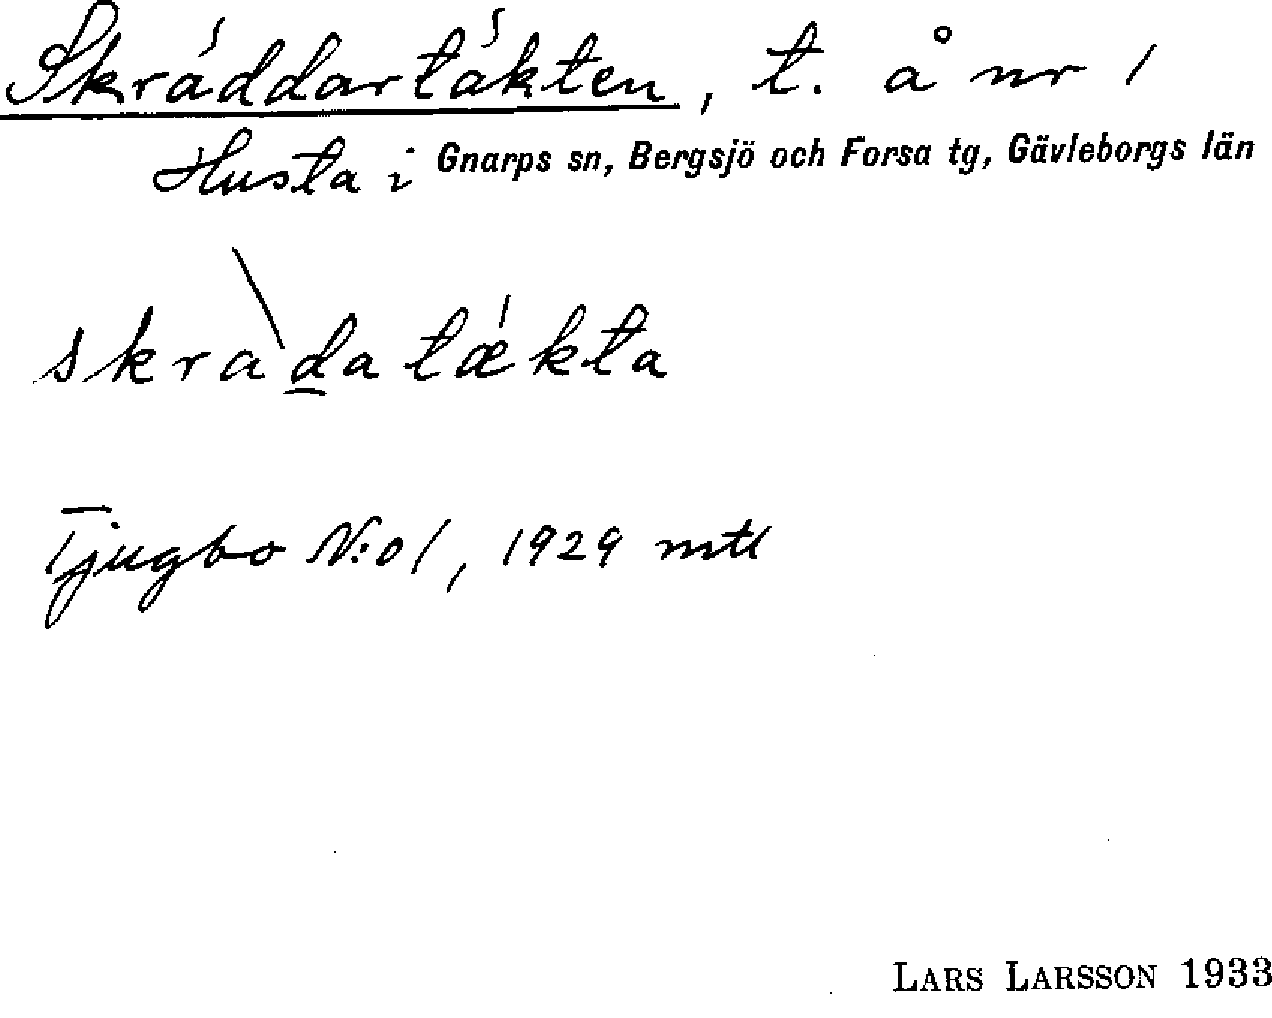 Skräddartäkten, t. å nr 1
Husta i Gnarps sn, Bergsjö och Forsa tg, Gävleborgs län
skrad̲atǽkta
Tjugbo N:o 1, 1929 mtl
LARS LARSSON 1933